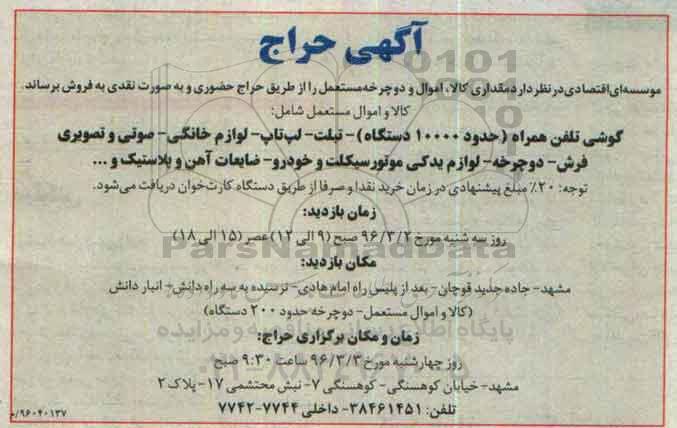 آگهی حراج
موسسه‌ای اقتصادی در نظر دارد مقداری کالا، اموال و دوچرخه مستعمل را از طریق حراج حضوری و به صورت نقدی به فروش برساند.
کالا و اموال مستعمل شامل:
گوشی تلفن همراه (حدود ۱۰۰۰۰ دستگاه)- تبلت- لپ‌تاپ- لوازم خانگی- صوتی و تصویری
فرش- دوچرخه- لوازم یدکی موتورسیکلت و خودرو- ضایعات آهن و پلاستیک و ...
توجه: ۲۰٪ مبلغ پیشنهادی در زمان خرید نقدا و صرفا از طریق دستگاه کارت‌خوان دریافت می‌شود.
زمان بازدید:
روز سه شنبه مورخ ۹۶/۳/۲ صبح (۹ الی ۱۲) عصر (۱۵ الی ۱۸)
ParsNamadData
مکان بازدید:
مشهد- جاده جدید قوچان- بعد از پلیس راه امام هادی- نرسیده به سه راه دانش- انبار دانش
(کالا و اموال مستعمل- دوچرخه حدود ۲۰۰ دستگاه)
پایگاه اطلاع رسانی مناقصه و مزایده
زمان و مکان برگزاری حراج:
روز چهارشنبه مورخ ۹۶/۳/۳ ساعت ۹:۳۰ صبح
مشهد- خیابان کوهسنگی- کوهسنگی ۷- نبش محتشمی ۱۷- پلاک ۲
تلفن: ۳۸۴۶۱۴۵۱- داخلی ۷۷۴۴-۷۷۴۲
۹۶۰۴۰۱۳۷/م